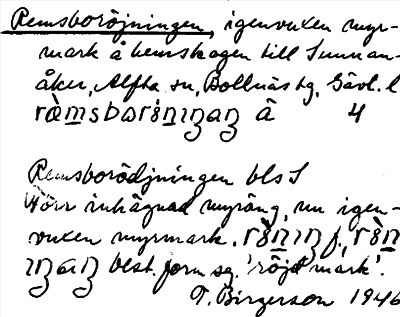 Remsboröjningen, igenvuxen myr-
mark å hemskogen till Sunnan-
åker, Alfta sn, Bollnäs tg, Gävl. l
â 4
Remsborödjningen bls S
Förr inhägnad myräng, nu igen-
vuxen myrmark.
blst. form sg. 'röjd mark'.
T. Birgerson 1946